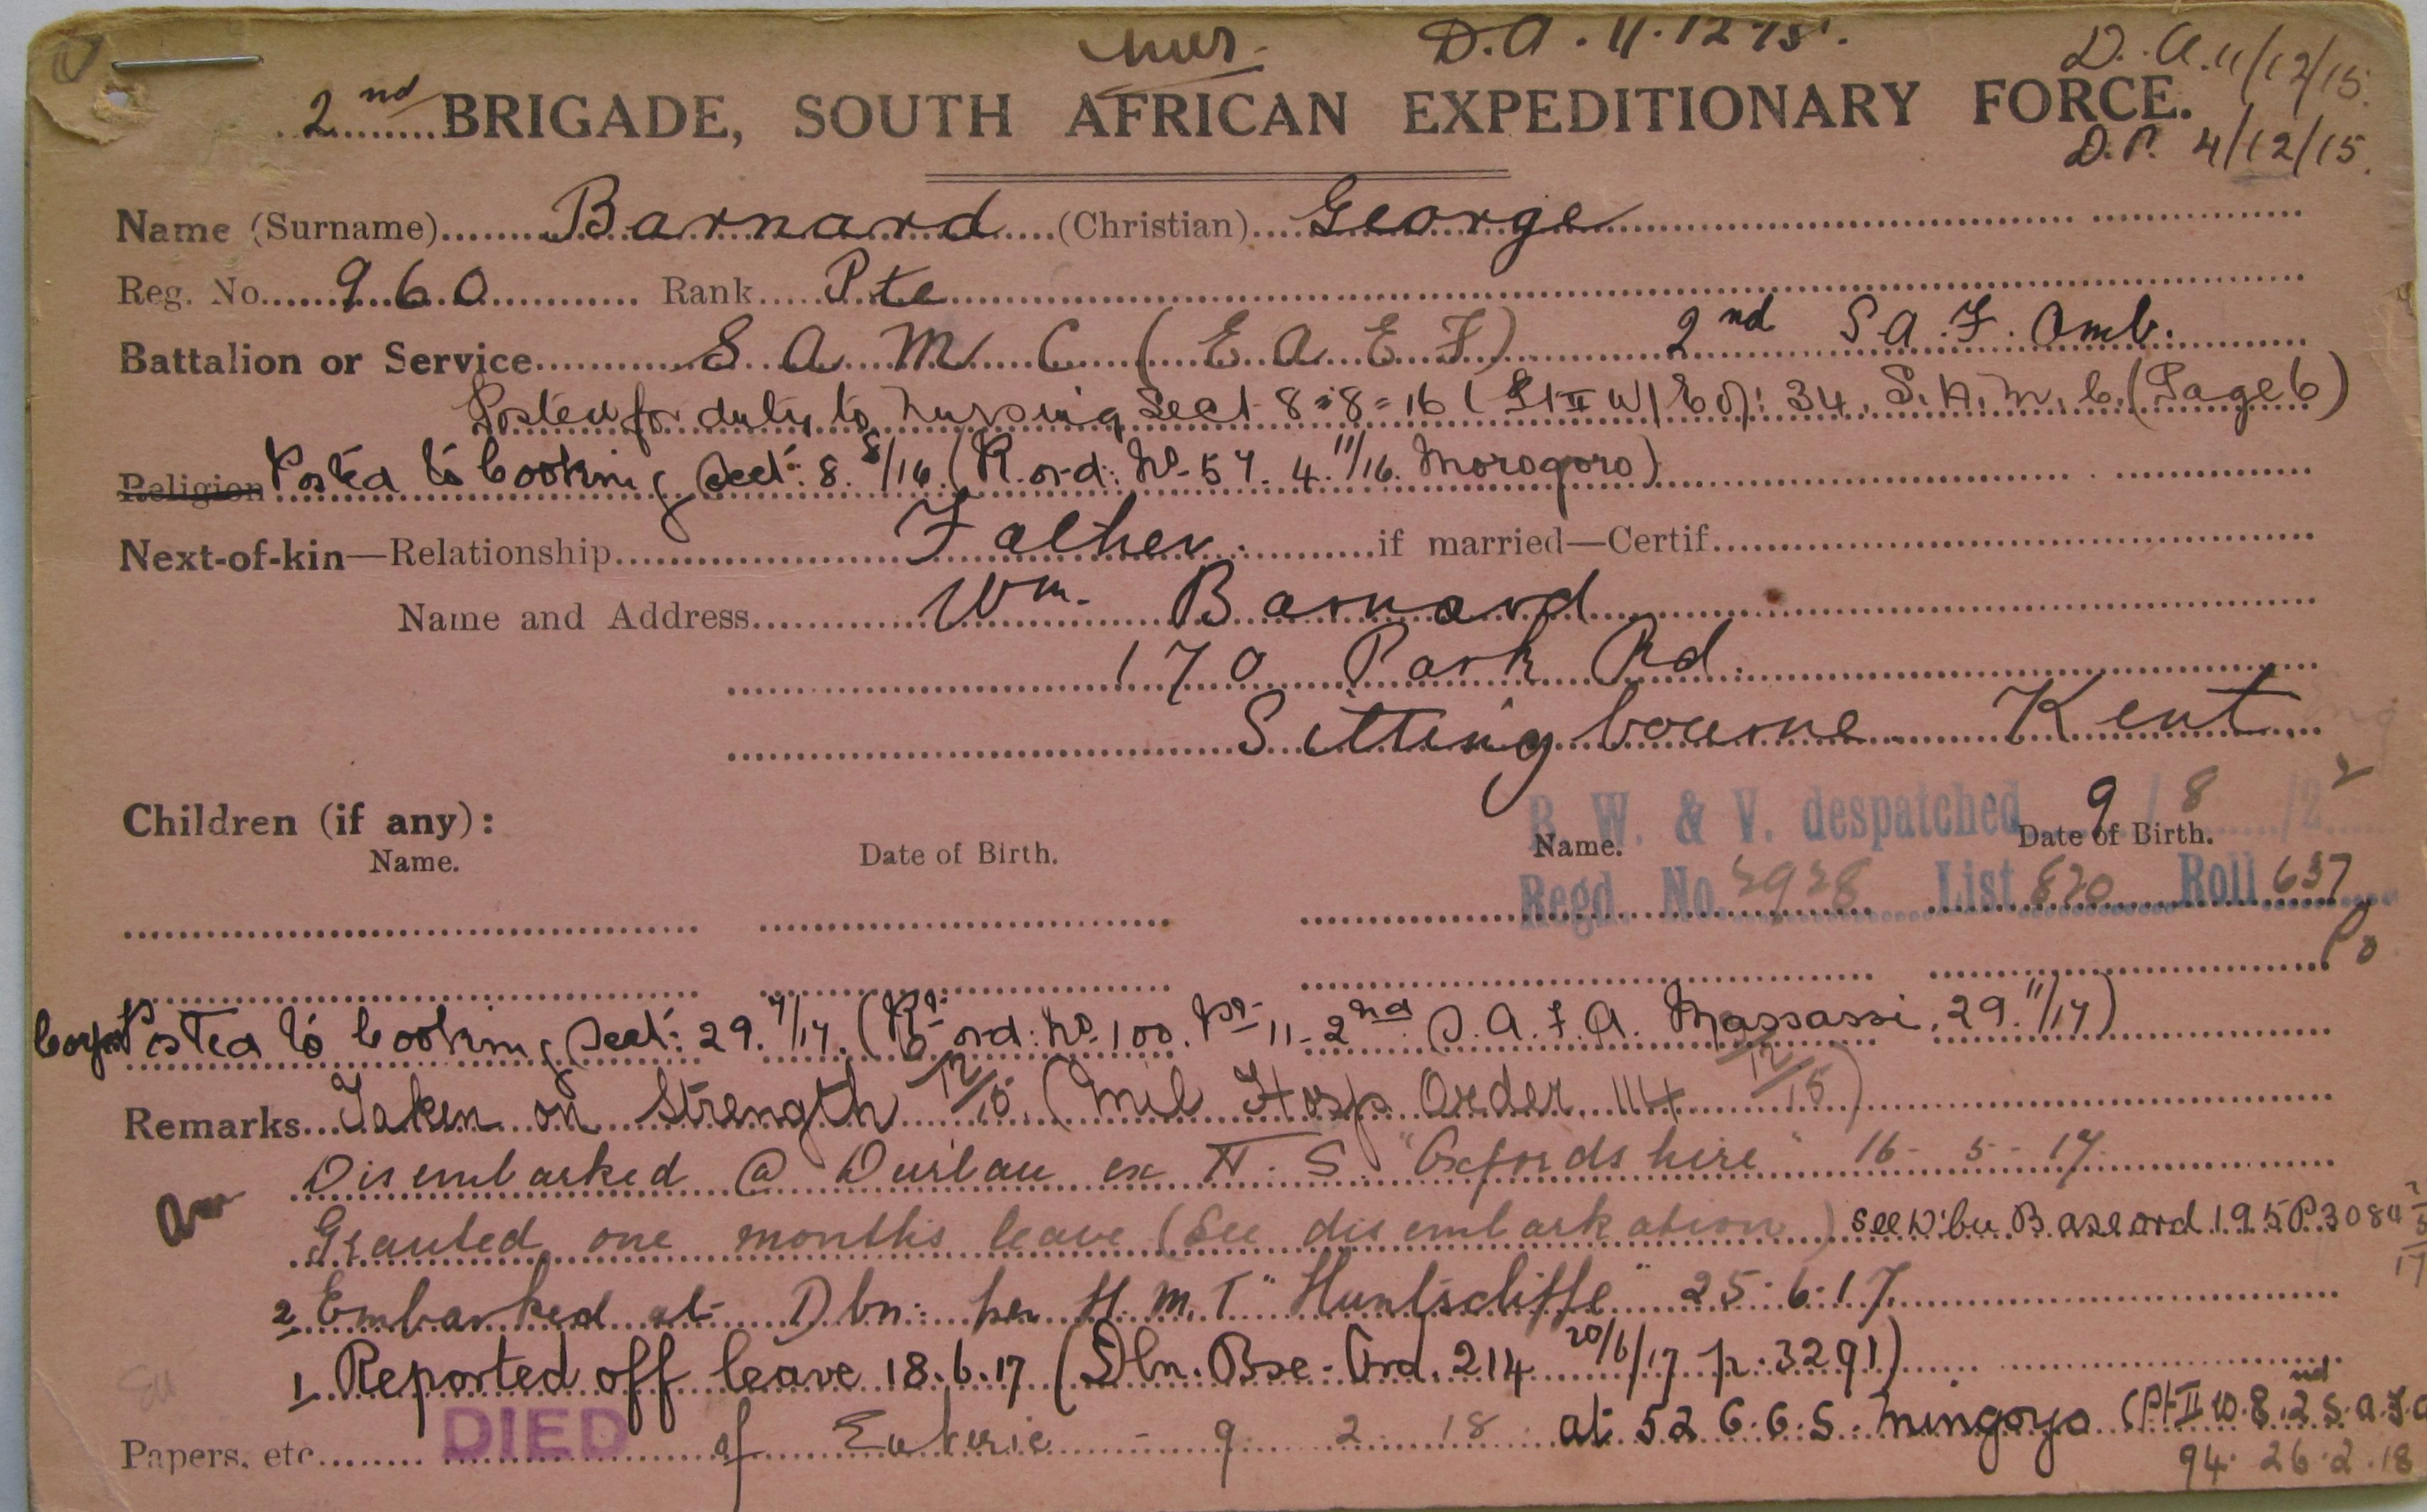 D.A. 11.12.15.
D.A. 11/12/15.
2nd BRIGADE, SOUTH AFRICAN EXPEDITIONARY FORCE.
D.P. 4/12/15.
Name (Surname) Barnard (Christian) George
Reg. No. 960 Rank Pte
Battalion or Service S A M C (E A E F) 2nd S A. F. Amb.
Posted for duty to Nursing Sect 8=8=16 (Pt II 34. S.A.M.C. (Page 6)
Religion Posted to Cooking Sect: 8. 8/16. (R. ord: No 57. 4. 11/16. Morogoro)
Next-of-kin—Relationship Father. if married—Certif.
Name and Address Wm. Barnard
170 Park Rd.
Sittingbourne Kent
R. W. & V. despatched 9/8/22
Children (if any):
Name. Date of Birth. Name. Date of Birth.
Regd. No. 2928 List 820 Roll 637
Posted to Cooking Sect: 29. 7/17. (Rt ord: No 100. No 11-2nd S.A.F.A. Massassi, 29. 11/17)
Remarks Taken on Strength 12/15 (Mil Hosp Order 114 12/15)
Disembarked @ Durban ex H. S. "Oxfordshire" 16-5-17.
Granted one months leave (See disembarkation) see D'bn Base ord 195 P. 3084
2 Embarked at Dbn: per H.M.T "Huntscliffe" 25.6.17.
1 Reported off leave 18.6.17 (Dbn. Bse. Ord. 214 20/6/17 p. 3291)
Papers, etc. DIED of Enteric - 9 2 18 at 52 C.C.S. Mingoyo (Pt II W.O. 8. 2nd S.A.F.A
94. 26.2.18